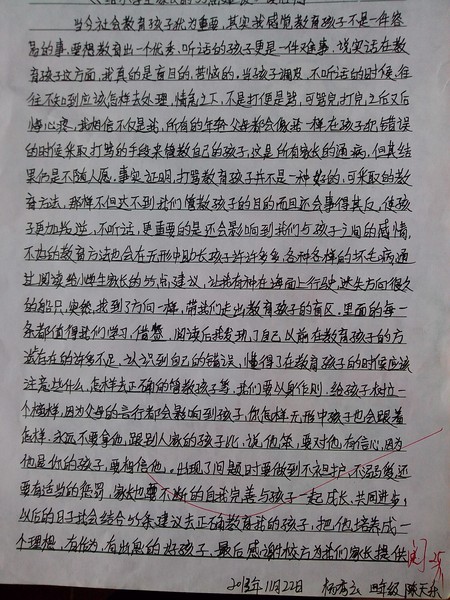 当今社会教育孩子尤为重要,其实我感觉教育孩子不是一件容
易的事,要想教育出一个优秀、听话的孩子更是一件难事,说实话在教
育孩子这方面,我真的是盲目的,苦恼的,当孩子调皮、不听话的时候,往
往不知到应该怎样去处理,情急之下,不是打便是骂,可骂完,打完,之后又后
悔心疼,我相信不仅是我,所有的年轻父母都会像我一样在孩子犯错误
的时候采取打骂的手段来管教自己的孩子,这是所有家长的通病,但其结
果仍是不随人愿,事实证明,打骂教育孩子并不是一种好的,可采取的教
育方法,那样不但达不到我们管教孩子的目的而且还会事得其反,使孩
子更加叛逆,不听话,更重要的是还会影响到我们与孩子之间的感情,
不当的教育方法也会在无形中助长孩子许许多多,各种各样的坏毛病通
过阅读给小学生家长的45点建议,让我有种在海面上行驶,迷失方向很久
的船只,突然,找到了方向一样,带我们走出教育孩子的盲区,里面的每一
条都值得我们学习,借鉴,阅读后我发现了自己以前在教育孩子的方
法存在的许多不足,认识到自己的错误,懂得了在教育孩子的时候应该
注意些什么,怎样去正确的管教孩子等,我们要以身作则,给孩子树立一
个榜样,因为父母的言行都会影响到孩子,你怎样无形中孩子也会跟着
怎样,永远不要拿他,跟别人家的孩子比,说他笨,要对他有信心,因为
他是你的孩子,要相信他,出现了问题时要做到不袒护,不
要有适当的惩罚,家长也要不断的自我完善与孩子一起成长,共同进步,
以后的日子我会结合45条建议去正确教育我的孩子,把他培养成一
个理想,有作为,有出息的好孩子,最后感谢校方为我们家长提供
2013年11月22日 杨秀云 四年级 陈天乐